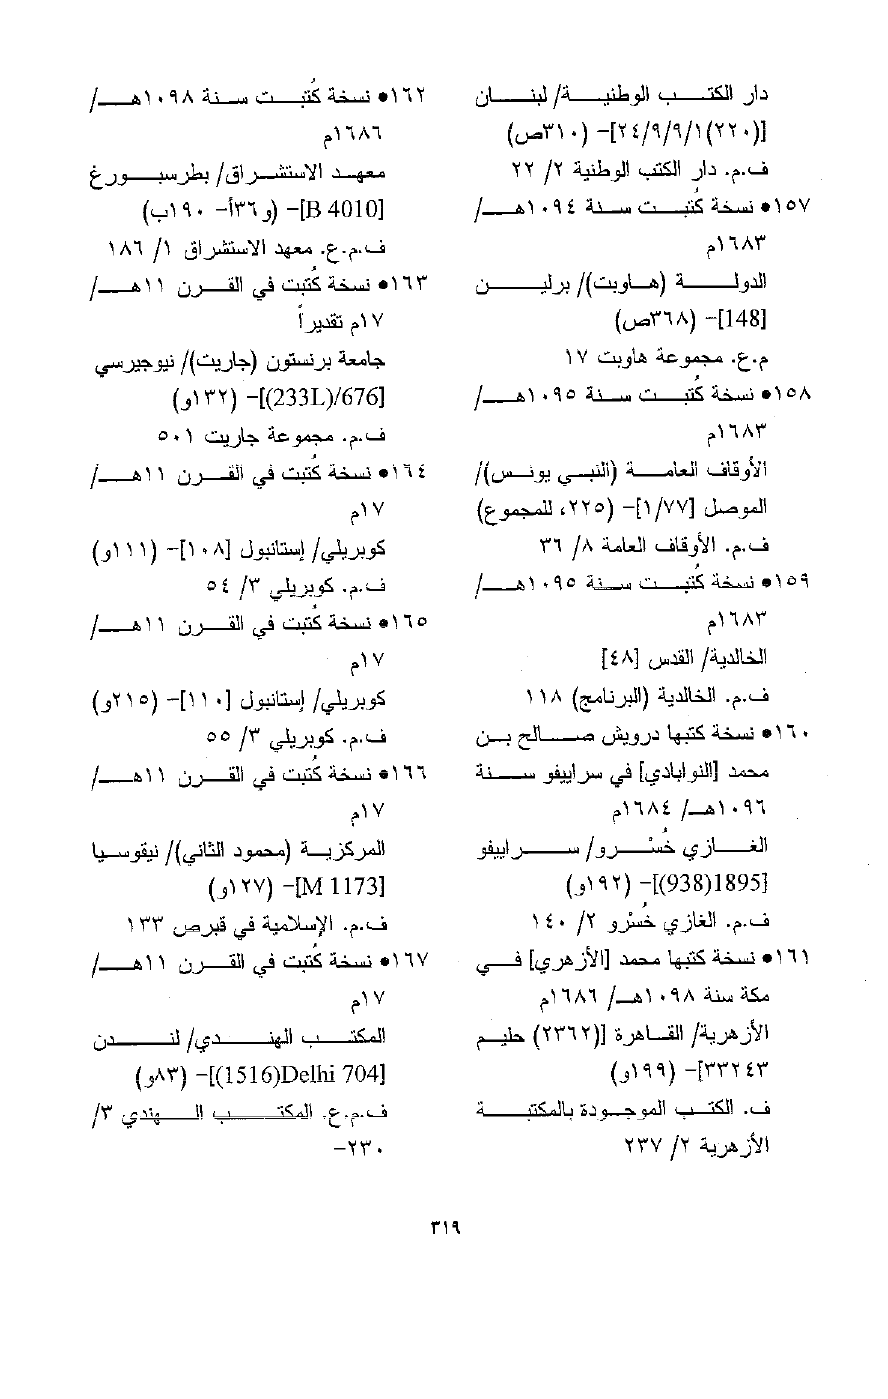 دار الكتب الوطنية/ لبنان
[(٢٢٠)٢٤/٩/٩/١]- (٣١٠ص)
ف.م. دار الكتب الوطنية ٢/ ٢٢
١٥٧• نسخة كُتبت سنة ١٠٩٤هـ/
١٦٨٣م
الدولة (هاوبت)/ برلين
[148]- (٣٦٨ص)
م.ع. مجموعة هاوبت ١٧
١٥٨• نسخة كُتبت سنة ١٠٩٥هـ/
١٦٨٣م
الأوقاف العامة (النبي يونس)/
الموصل [١/٧٧]- (٢٢٥، للمجموع)
ف.م. الأوقاف العامة ٨/ ٣٦
١٥٩• نسخة كُتبت سنة ١٠٩٥هـ/
١٦٨٣م
الخالدية/ القدس [٤٨]
ف.م. الخالدية (البرنامج) ١١٨
١٦٠• نسخة كتبها درويش صالح بن
محمد [النوابادي] في سراييفو سنة
١٠٩٦هـ/ ١٦٨٤م
الغازي خُسْرو/ سراييفو
[1895(938)]- (١٩٢و)
ف.م. الغازي خُسْرو ٢/ ١٤٠
١٦١• نسخة كتبها محمد [الأزهري] في
مكة سنة ١٠٩٨هـ/ ١٦٨٦م
الأزهرية/ القاهرة [(٢٣٦٢) حليم
٣٣٢٤٣]- (١٩٩و)
ف. الكتب الموجودة بالمكتبة
الأزهرية ٢/ ٢٣٧
١٦٢• نسخة كُتبت سنة ١٠٩٨هـ/
١٦٨٦م
معهد الاستشراق/ بطرسبورغ
[B 4010]- (و٣٦أ- ١٩٠ب)
ف.م.ع. معهد الاستشراق ١/ ١٨٦
١٦٣• نسخة كُتبت في القرن ١١هـ/
١٧م تقديراً
جامعة برنستون (جاريت)/ نيوجيرسي
[676/(233L)]- (١٣٢و)
ف.م. مجموعة جاريت ٥٠١
١٦٤• نسخة كُتبت في القرن ١١هـ/
١٧م
كوبريلي/ إستانبول [١٠٨]- (١١١و)
ف.م. كوبريلي ٣/ ٥٤
١٦٥• نسخة كُتبت في القرن ١١هـ/
١٧م
كوبريلي/ إستانبول [١١٠]- (٢١٥و)
ف.م. كوبريلي ٣/ ٥٥
١٦٦• نسخة كُتبت في القرن ١١هـ/
١٧م
المركزية (محمود الثاني)/ نيقوسيا
[M 1173]- (١٢٧و)
ف.م. الإسلامية في قبرص ١٣٣
١٦٧• نسخة كُتبت في القرن ١١هـ/
١٧م
المكتب الهندي/ لندن
[Delhi 704(1516)]- (٨٣و)
ف.م.ع. المكتب الهندي ٣/
٢٣٠-
٣١٩